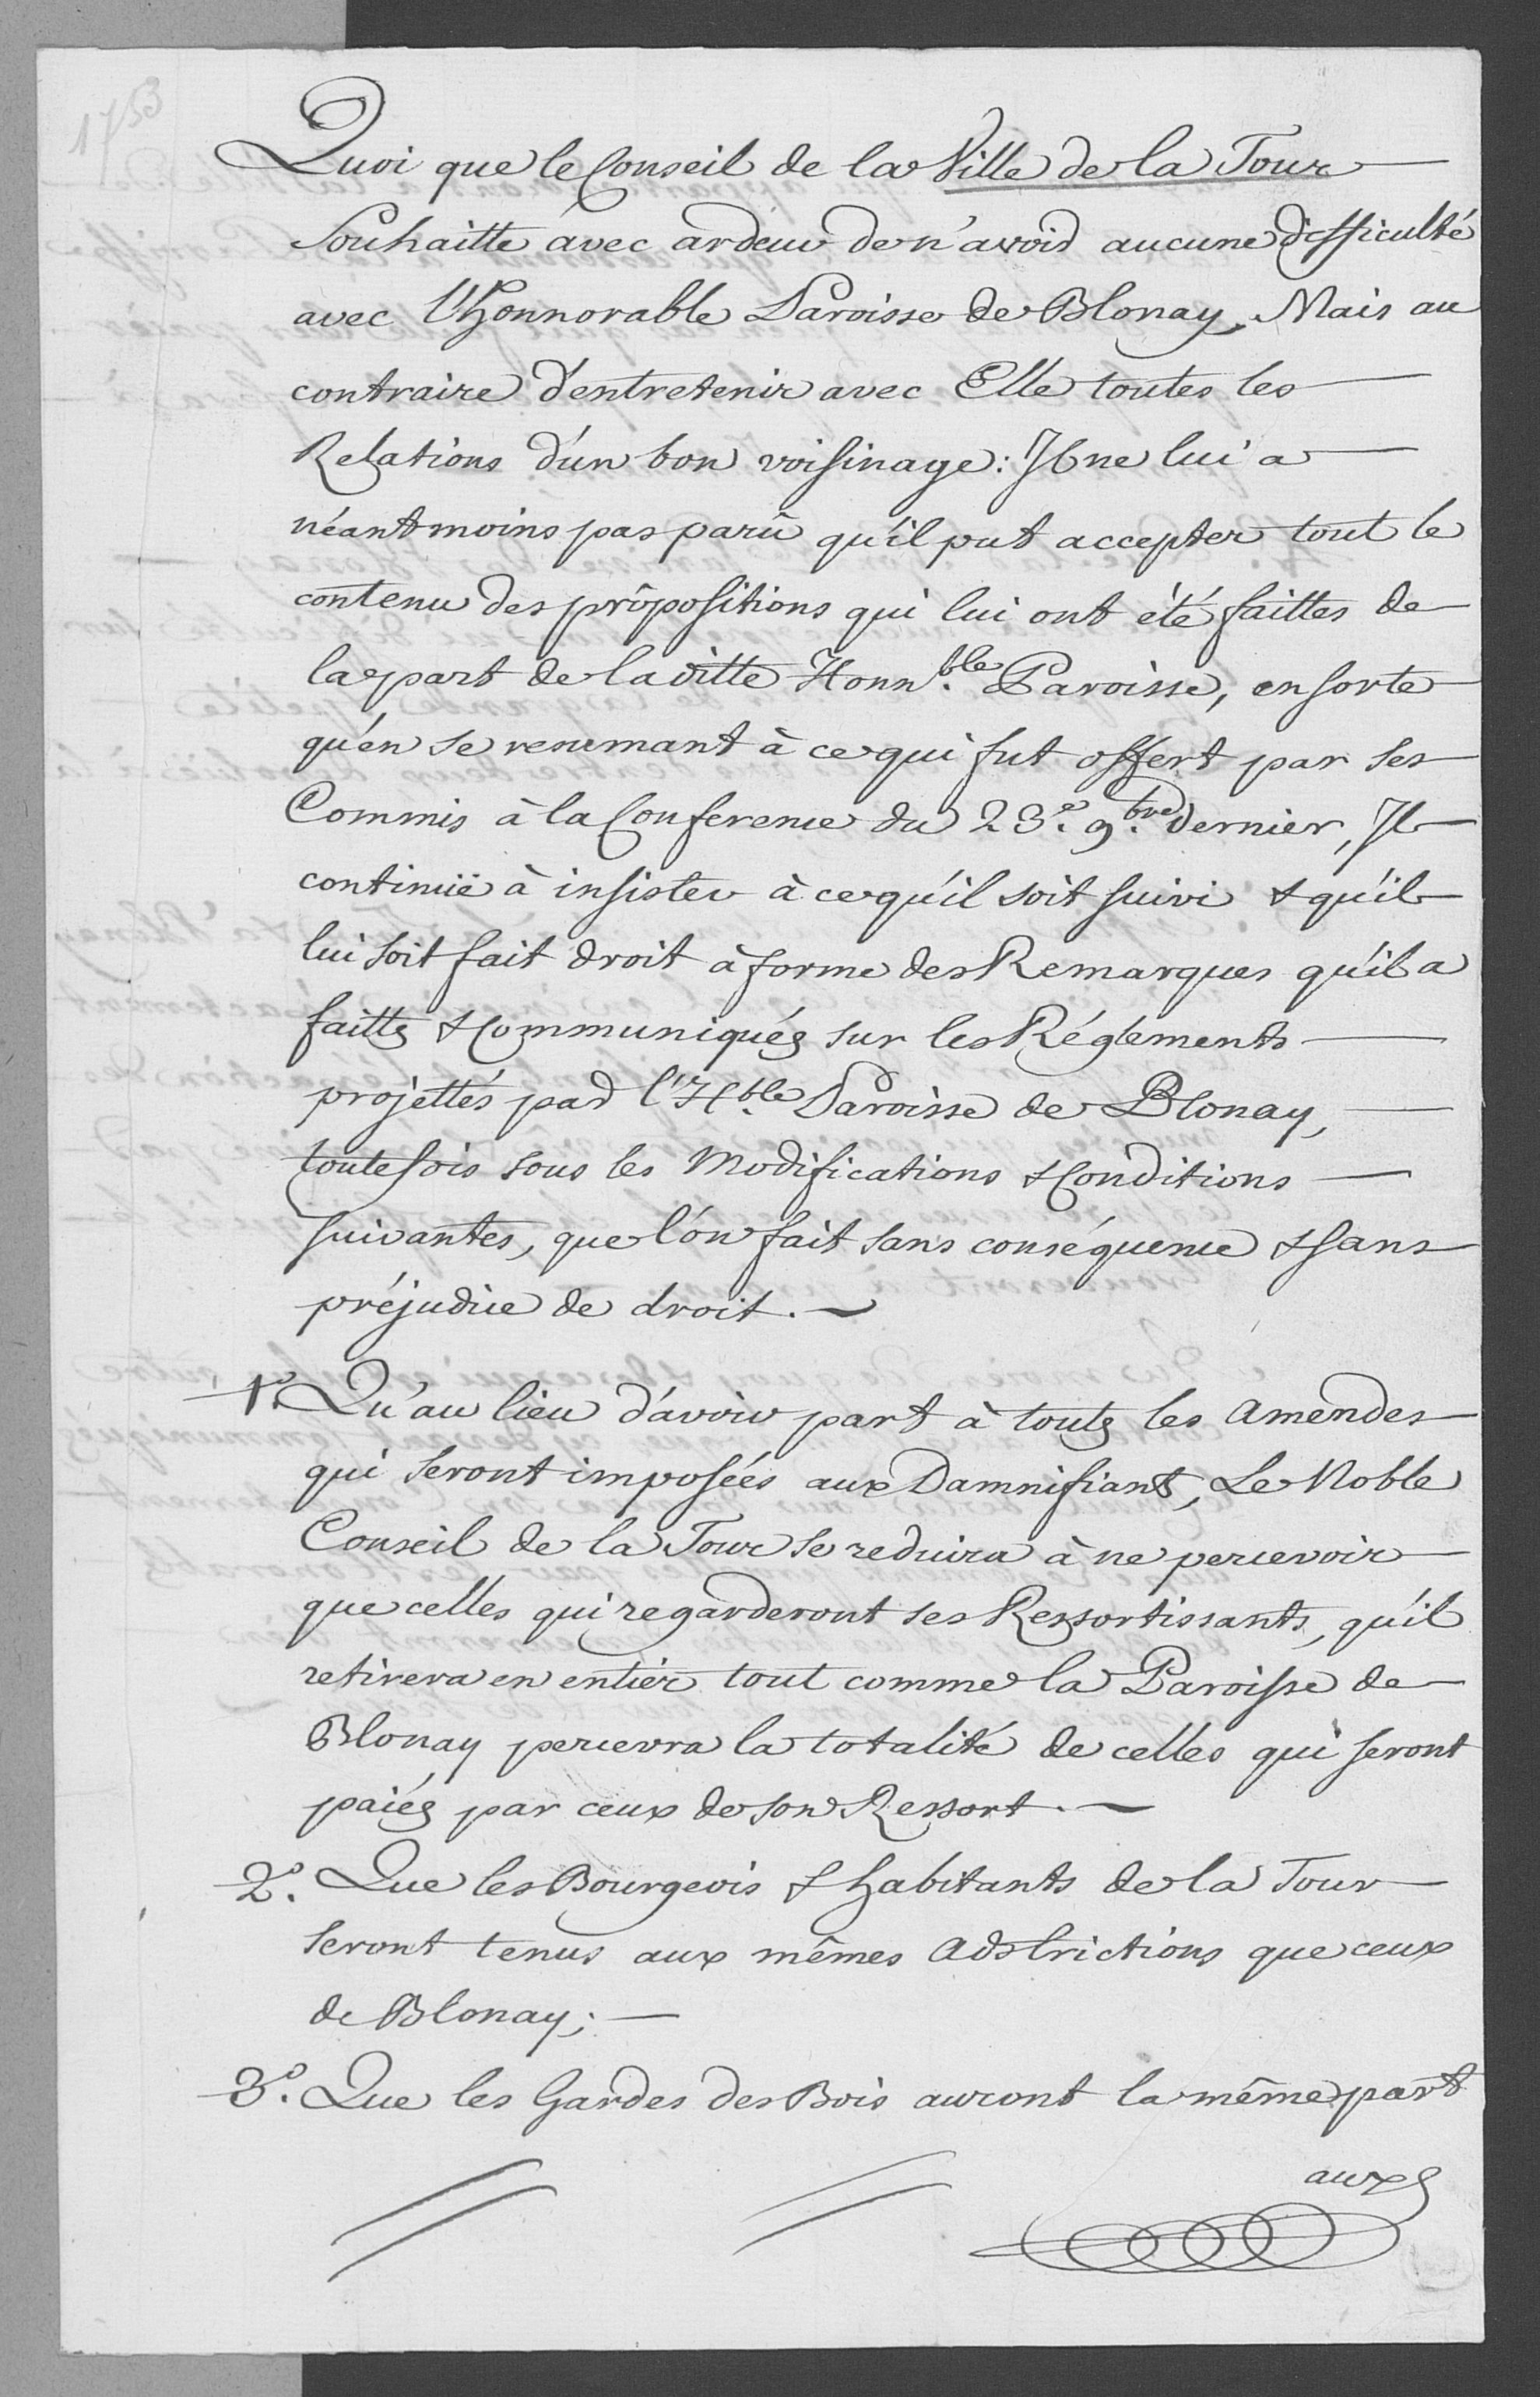 1753
Quoi que le Conseil de la Ville de la Tour
Souhaitte avec ardeur de n'avoir aucune difficulté
avec l'Honnorable Paroisse de Blonay, Mais au
contraire d'entretenir avec Elle toutes les
Relations d'un bon voisinage: Il ne lui a
néantmoins pas parû qu'il put accepter tout le
contenu des propositions qui lui ont été faittes de
la part de la ditte Honn.ble Paroisse, ensorte
qu'en se resumant à ce qui fut offert par ses
Commis à la Conference du 23.e 9.bre dernier, Il
continüe à insister à ce qu'il soit suivi & qu'il
lui soit fait droit à forme des Remarques qu'il a
faittes & Communiquées sur les Réglements
projettés par l'H.ble Paroisse de Blonay,
toutefois sous les Modifications & Conditions
suivantes, que l'on fait sans conséquence & sans
préjudice de droit.
1.o Qu'au lieu d'avoir part à toutes les amendes
qui seront imposées aux Damnifiants, Le Noble
Conseil de la Tour se reduira à ne percevoir
que celles qui regarderont ses Ressortissants, qu'il
retirera en entier tout comme la Paroisse de
Blonay percevra la totalité de celles qui seront
paiées par ceux de son Ressort.
2.o Que les Bourgeois & habitants de la Tour
seront tenus aux mêmes adstrictions que ceux
de Blonay;
3.o Que les Gardes des Bois auront la même part
aux